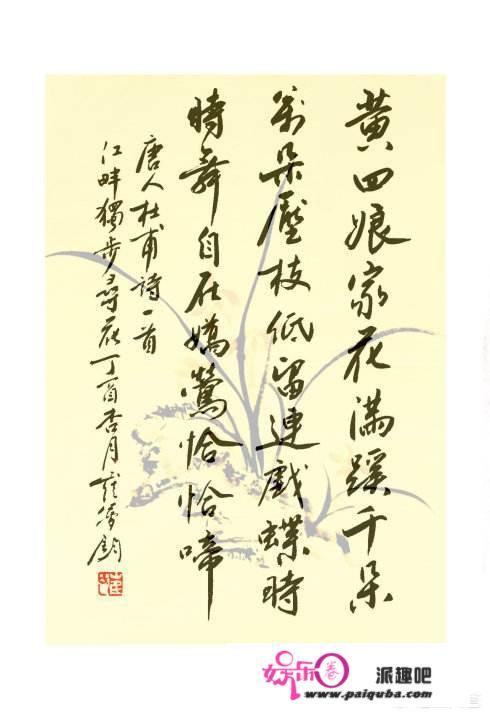 黄四娘家花滿蹊千朵
萬朵壓枝低留連戲蝶時
時舞自在嬌鶯恰恰啼
唐人杜甫詩一首
江畔獨步尋花丁酉杏月
娱乐圈
派趣吧
www.paiquba.com